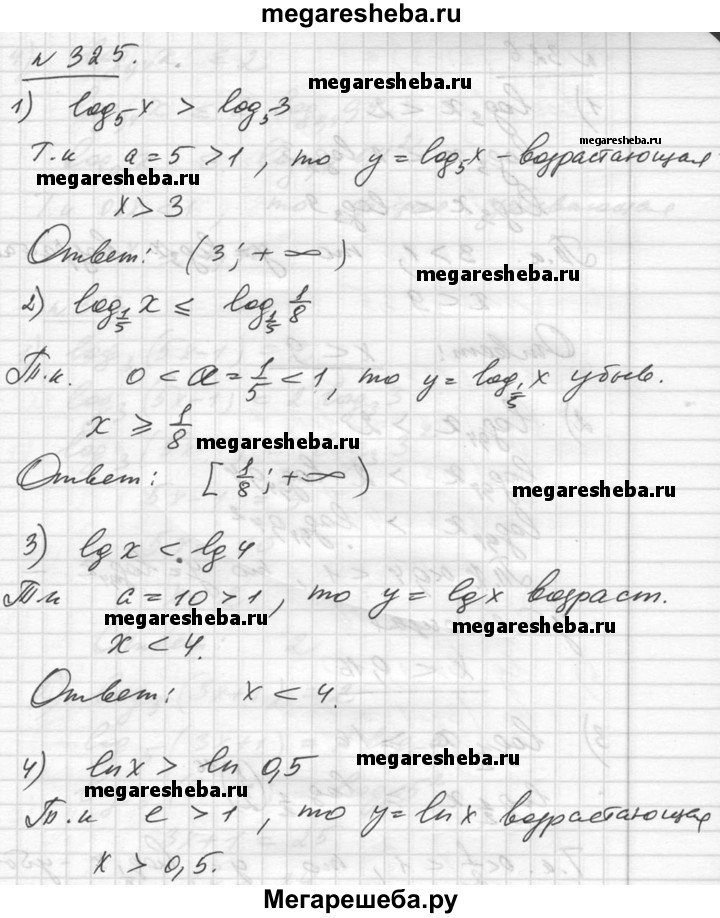 megaresheba.ru
N 325.
megaresheba.ru
1) log₅x > log₅3
megaresheba.ru
Т.к a = 5 > 1, то y = log₅x - возрастающая
megaresheba.ru
x > 3
Ответ: (3; +∞)
megaresheba.ru
2) log_{1/5} x ≤ log_{1/5} 1/8
Т.к. 0 < a = 1/5 < 1, то y = log_{1/5} x убыв.
x ≥ 1/8
megaresheba.ru
Ответ: [1/8; +∞)
megaresheba.ru
3) lg x < lg 4
Т.к a = 10 > 1, то y = lg x возраст.
megaresheba.ru
megaresheba.ru
x < 4.
Ответ: x < 4.
4) ln x > ln 0,5
megaresheba.ru
megaresheba.ru
Т.к e > 1, то y = ln x возрастающая
x > 0,5.
Мегарешеба.ру